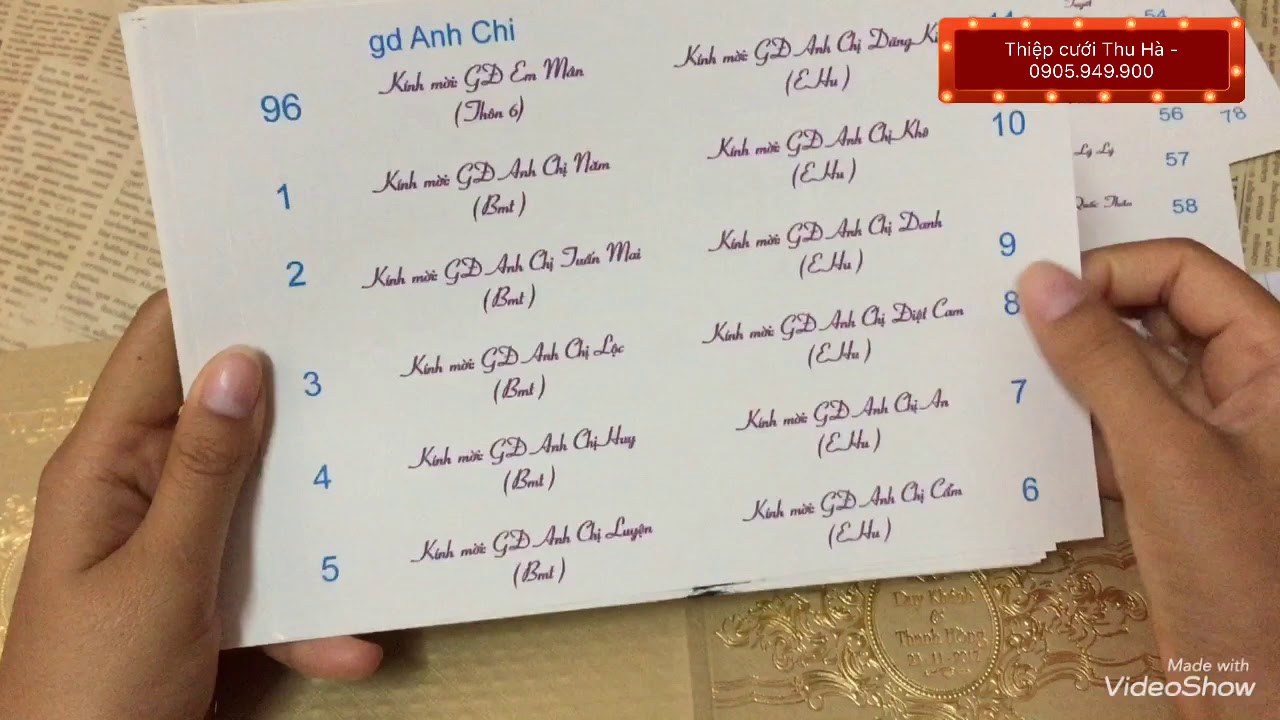 gd Anh Chi
96
Kính mời: GĐ Em Mân
(Thôn 6)
1
Kính mời: GĐ Anh Chị Năm
(Bmt)
2
Kính mời: GĐ Anh Chị Tuấn Mai
(Bmt)
3
Kính mời: GĐ Anh Chị Lộc
(Bmt)
4
Kính mời: GĐ Anh Chị Huy
(Bmt)
5
Kính mời: GĐ Anh Chị Luyện
(Bmt)
Kính mời: GĐ Anh Chị Đăng
(EHu)
Kính mời: GĐ Anh Chị Kho
(EHu)
10
Kính mời: GĐ Anh Chị Danh
(EHu)
9
Kính mời: GĐ Anh Chị Diệt Cam
(EHu)
8
Kính mời: GĐ Anh Chị An
(EHu)
7
Kính mời: GĐ Anh Chị Cẩm
(EHu)
6
Thiệp cưới Thu Hà -
0905.949.900
56
78
Ly Ly
57
Quốc Thân
58
Duy Khánh
&
Thanh Hồng
21.11.2017
Made with
VideoShow